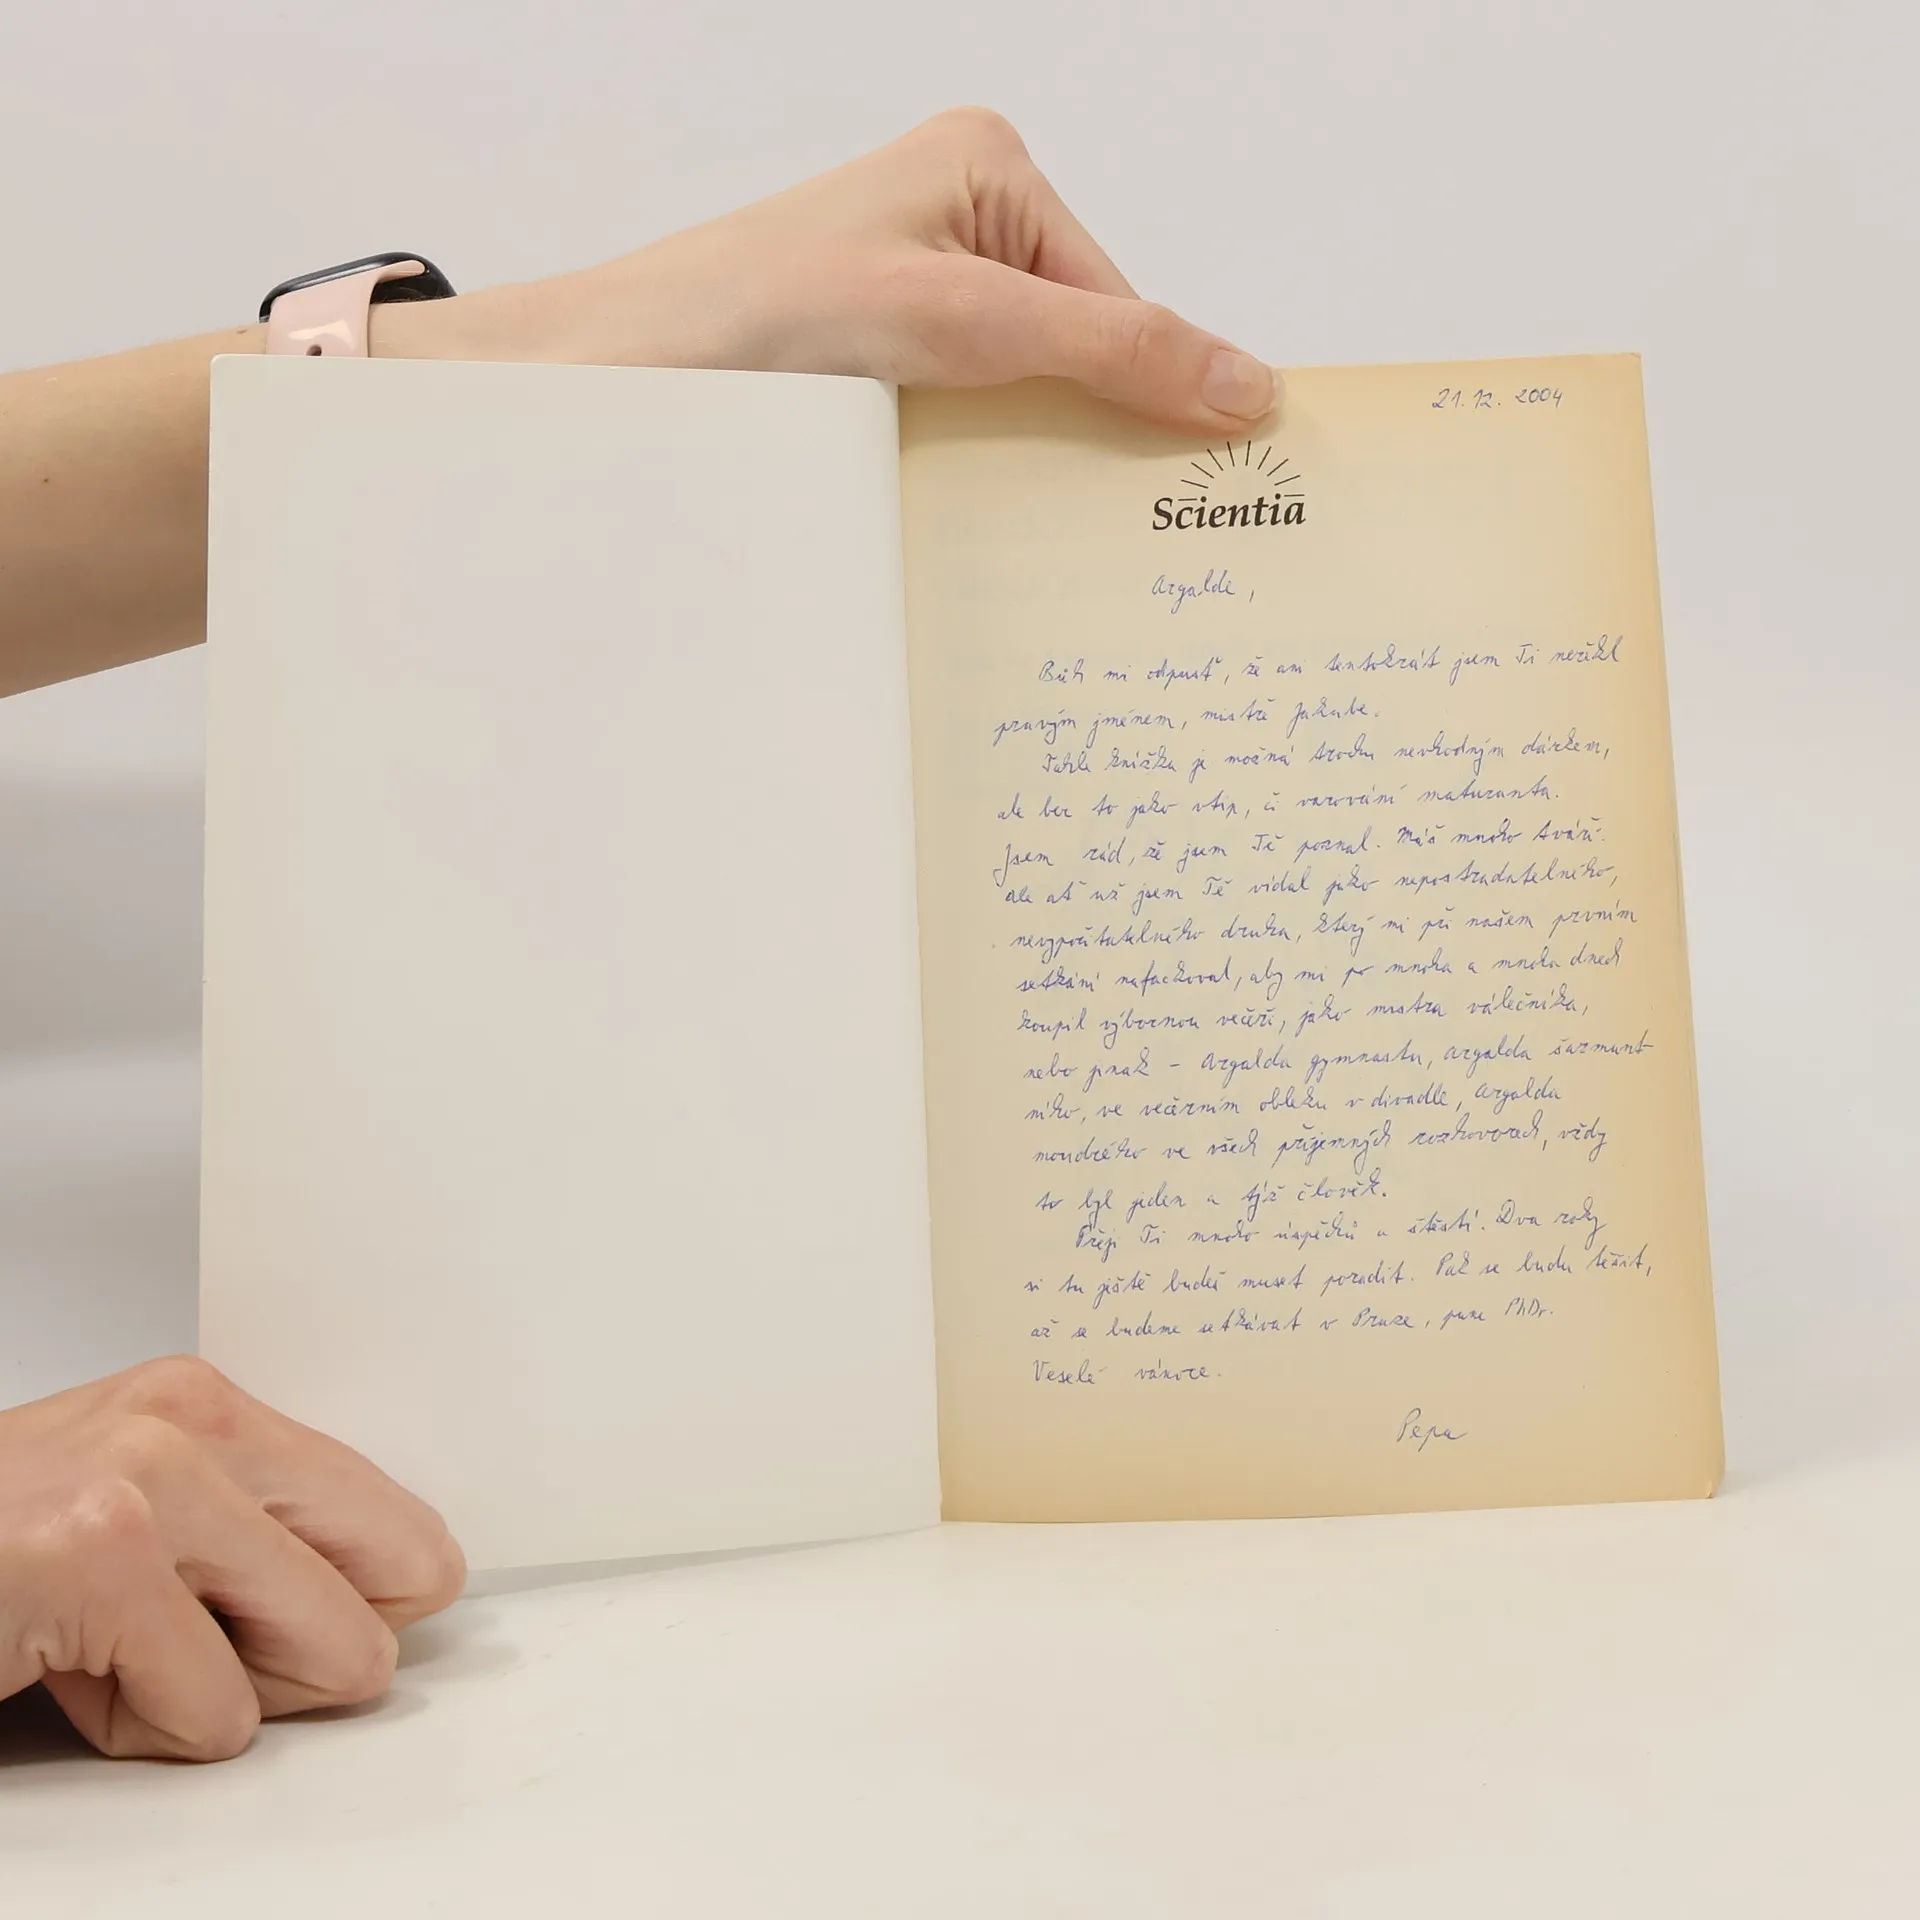 21. 12. 2004
Scientia
Argalde,
Bůh mi odpusť, že ani tentokrát jsem Ti neřekl
pravým jménem, mistře Jakube.
Tahle knížka je možná trochu nevhodným dárkem,
ale ber to jako vtip, či varování maturanta.
Jsem rád, že jsem Tě poznal. Máš mnoho tváří.
ale ať už jsem Tě vídal jako nepostradatelného,
nevypočitatelného druha, který mi při našem prvním
setkání nafackoval, aby mi po mnoha a mnoha dnech
koupil výbornou večeři, jako mistra válečníka,
nebo jinak - Argalda gymnastu, Argalda šarmant-
ního, ve večerním obleku v divadle, Argalda
moudrého ve všech příjemných rozhovorech, vždy
to byl jeden a týž člověk.
Přeji Ti mnoho úspěchů a štěstí. Dva roky
si tu ještě budeš muset poradit. Pak se budu těšit,
až se budeme setkávat v Praze, pane PhDr.
Veselé vánoce.
Pepa